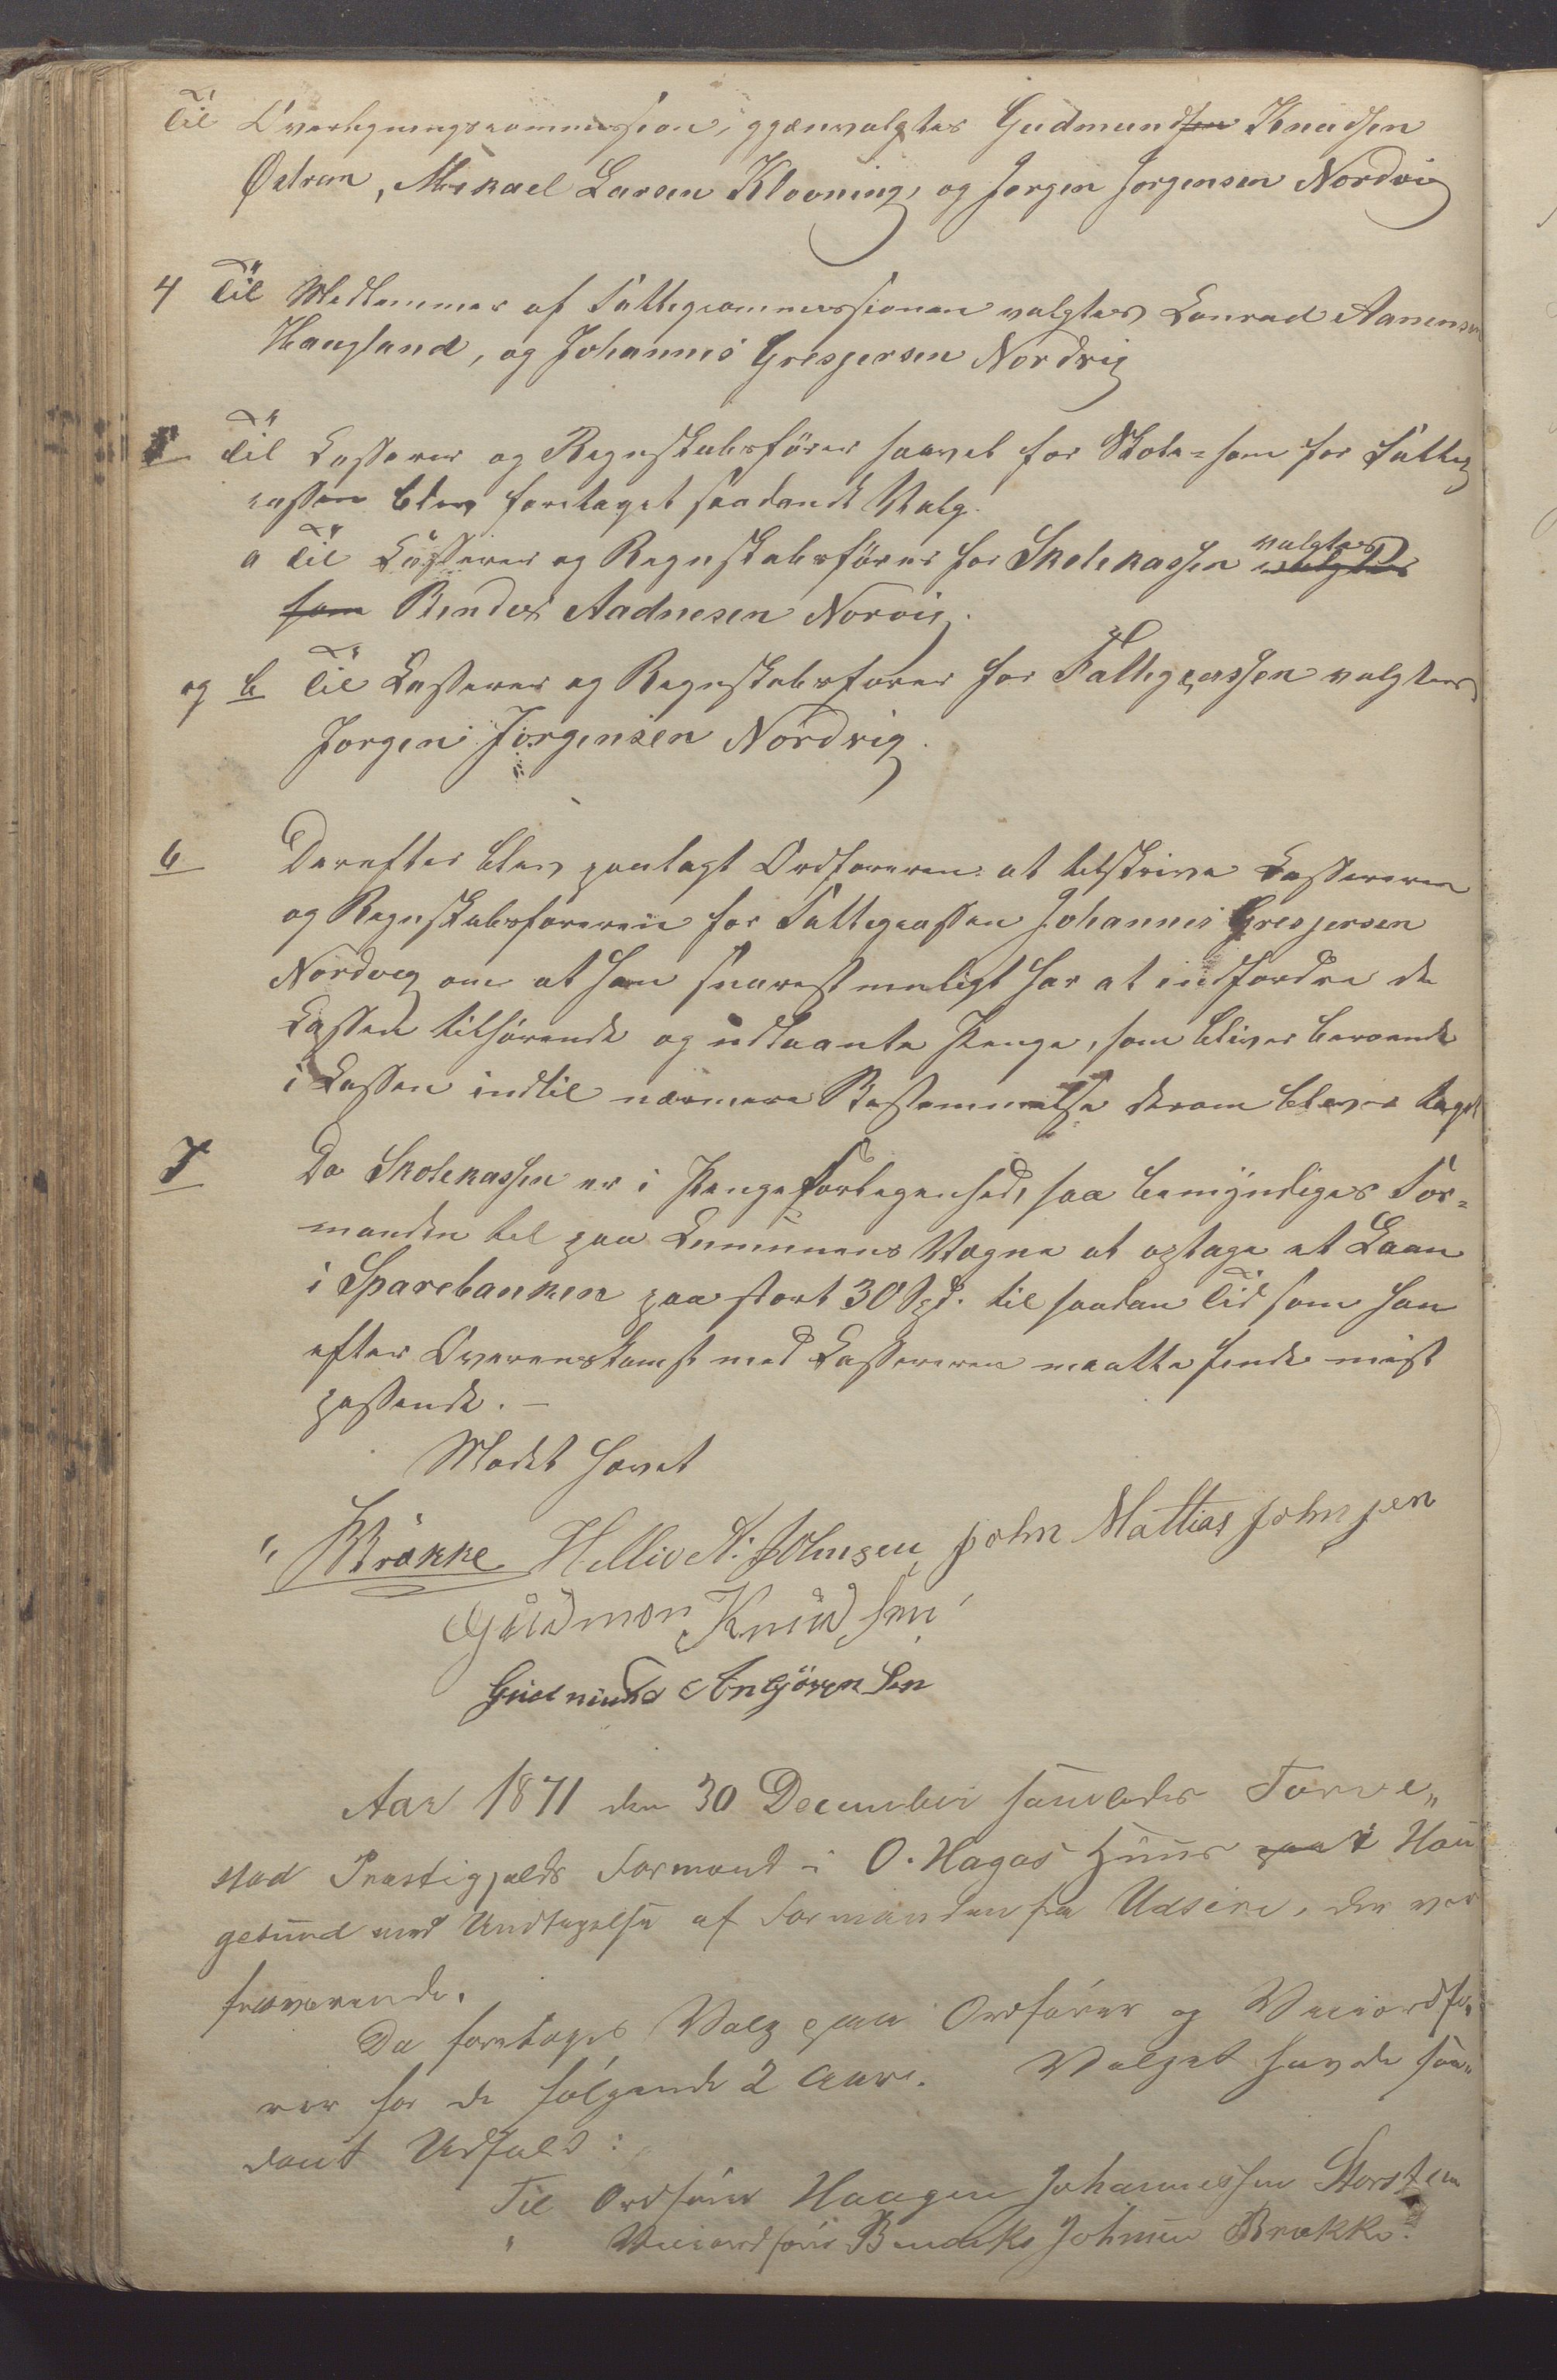 Til Overligningscommission, gjenvalgtes Gudmundsen Knudsen
Østrem, Mikael Larsen Klovning, og Jørgen Jørgensen Nordvig
4 Til Medlemmer af Fattigcommissionen valgtes Conrad Aanensen
Haugland, og Johannes Gresjersen Nordvig
5 Til Casserer og Regnskabsfører saavel for Skole- som for Fattig
cassen blev foretaget saadandt Valg.
a Til Casserer og Regnskabsfører for Skolekassen valgtes
som Bendix Aadnesen Norvig.
og b Til Casserer og Regnskabsfører for Fattigcassen valgtes
Jørgen Jørgensen Nordvig.
6 Derefter blev paalagt Ordføreren at tilskrive Cassereren
og Regnskabsføreren for Fattigcassen Johannes Gresjersen
Nordvig om at han snarest muligt har at indfordre de
Cassen tilhørende og udlaante Penge, som bliver beroende
i Cassen indtil nærmere Bestemmelse derom bliver taget
7 Da Skolekassen er i Pengeforlegenhed, saa bemyndiges For-
manden til paa Comunens Vegne at optage et Laan
i Sparebanken paa stort 30 Spd. til saadan Tid som han
efter Overenskomst med Cassereren maatte finde mest
passende. –
Mødet hævet
Brække Hellie N. Johnsen John Mattias Johnsen
Gudmon Knudsen
Gudmund Asbjörnsen
Aar 1871 den 30 December samledes Torve„
stad Præstigjelds Formænd i O. Hagas Huus paa i Hau
gesund med Undtagelse af Formanden fra Udsire, der var
fraværende.
Da foretoges Valg paa Ordfører og Viceordfø„
rer for de følgende 2 Aar. Valget havde saa„
dant Udfald:
Til Ordfører Haagen Johannessen Storsten
" Viceordfører Bendiks Johnsen Brække.